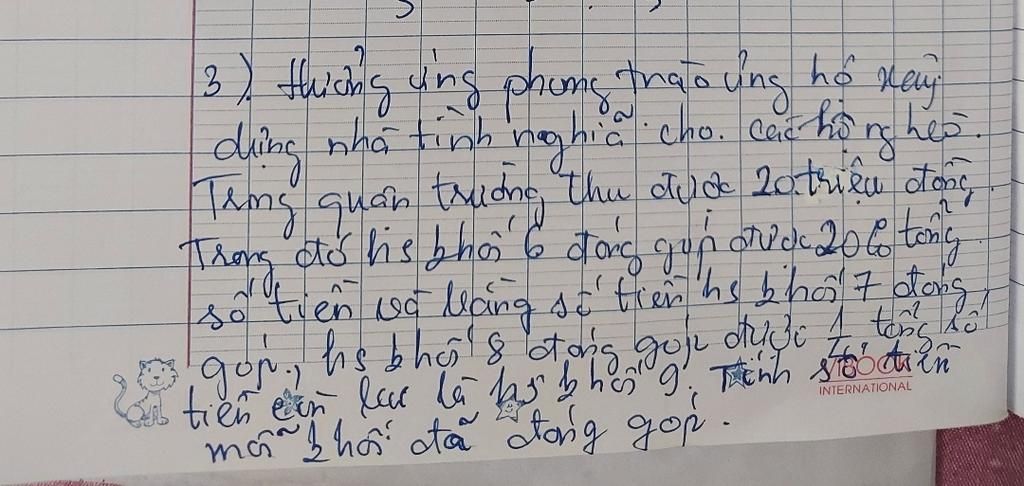 3). Hưởng ứng phong trào ủng hộ xây
dựng nhà tình nghĩa cho các hộ nghèo.
Trung quân trường thu được 20 triệu đồng.
Trong đó hs khối 6 đóng góp được 20% tổng
số tiền và bằng số tiền hs khối 7 đóng
góp., hs khối 8 đóng góp được tổng số
tiền còn lại là hs khối 9. Tính số tiền
INTERNATIONAL
mỗi khối đã đóng góp.